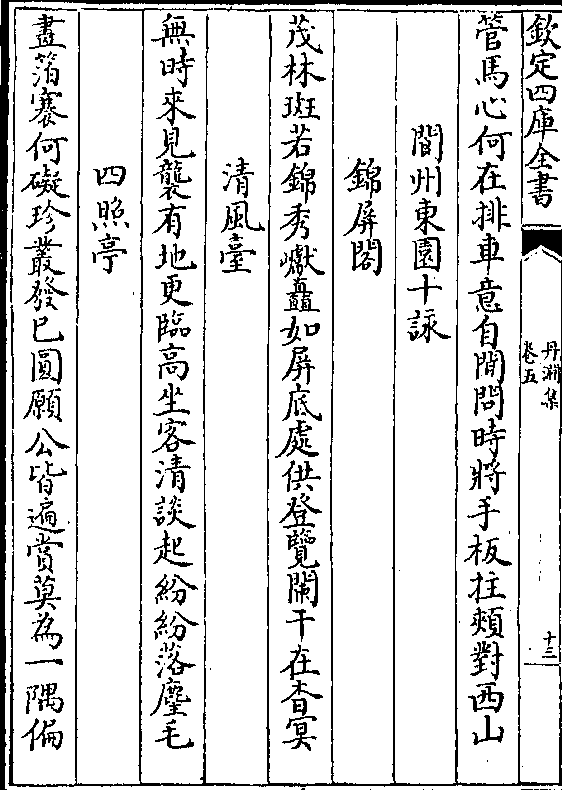 欽定四庫全書
丹淵集
卷五
十三
管馬心何在排車意自閒問時將手板拄頰對西山
閬州東園十詠
錦屏閣
茂林斑若錦秀巘矗如屏底處供登覽闌干在杳冥
清風臺
無時來見襲有地更臨高坐客清談起紛紛落麈毛
四照亭
畫箔褰何礙珍叢發已圓願公皆遍賞莫為一隅偏